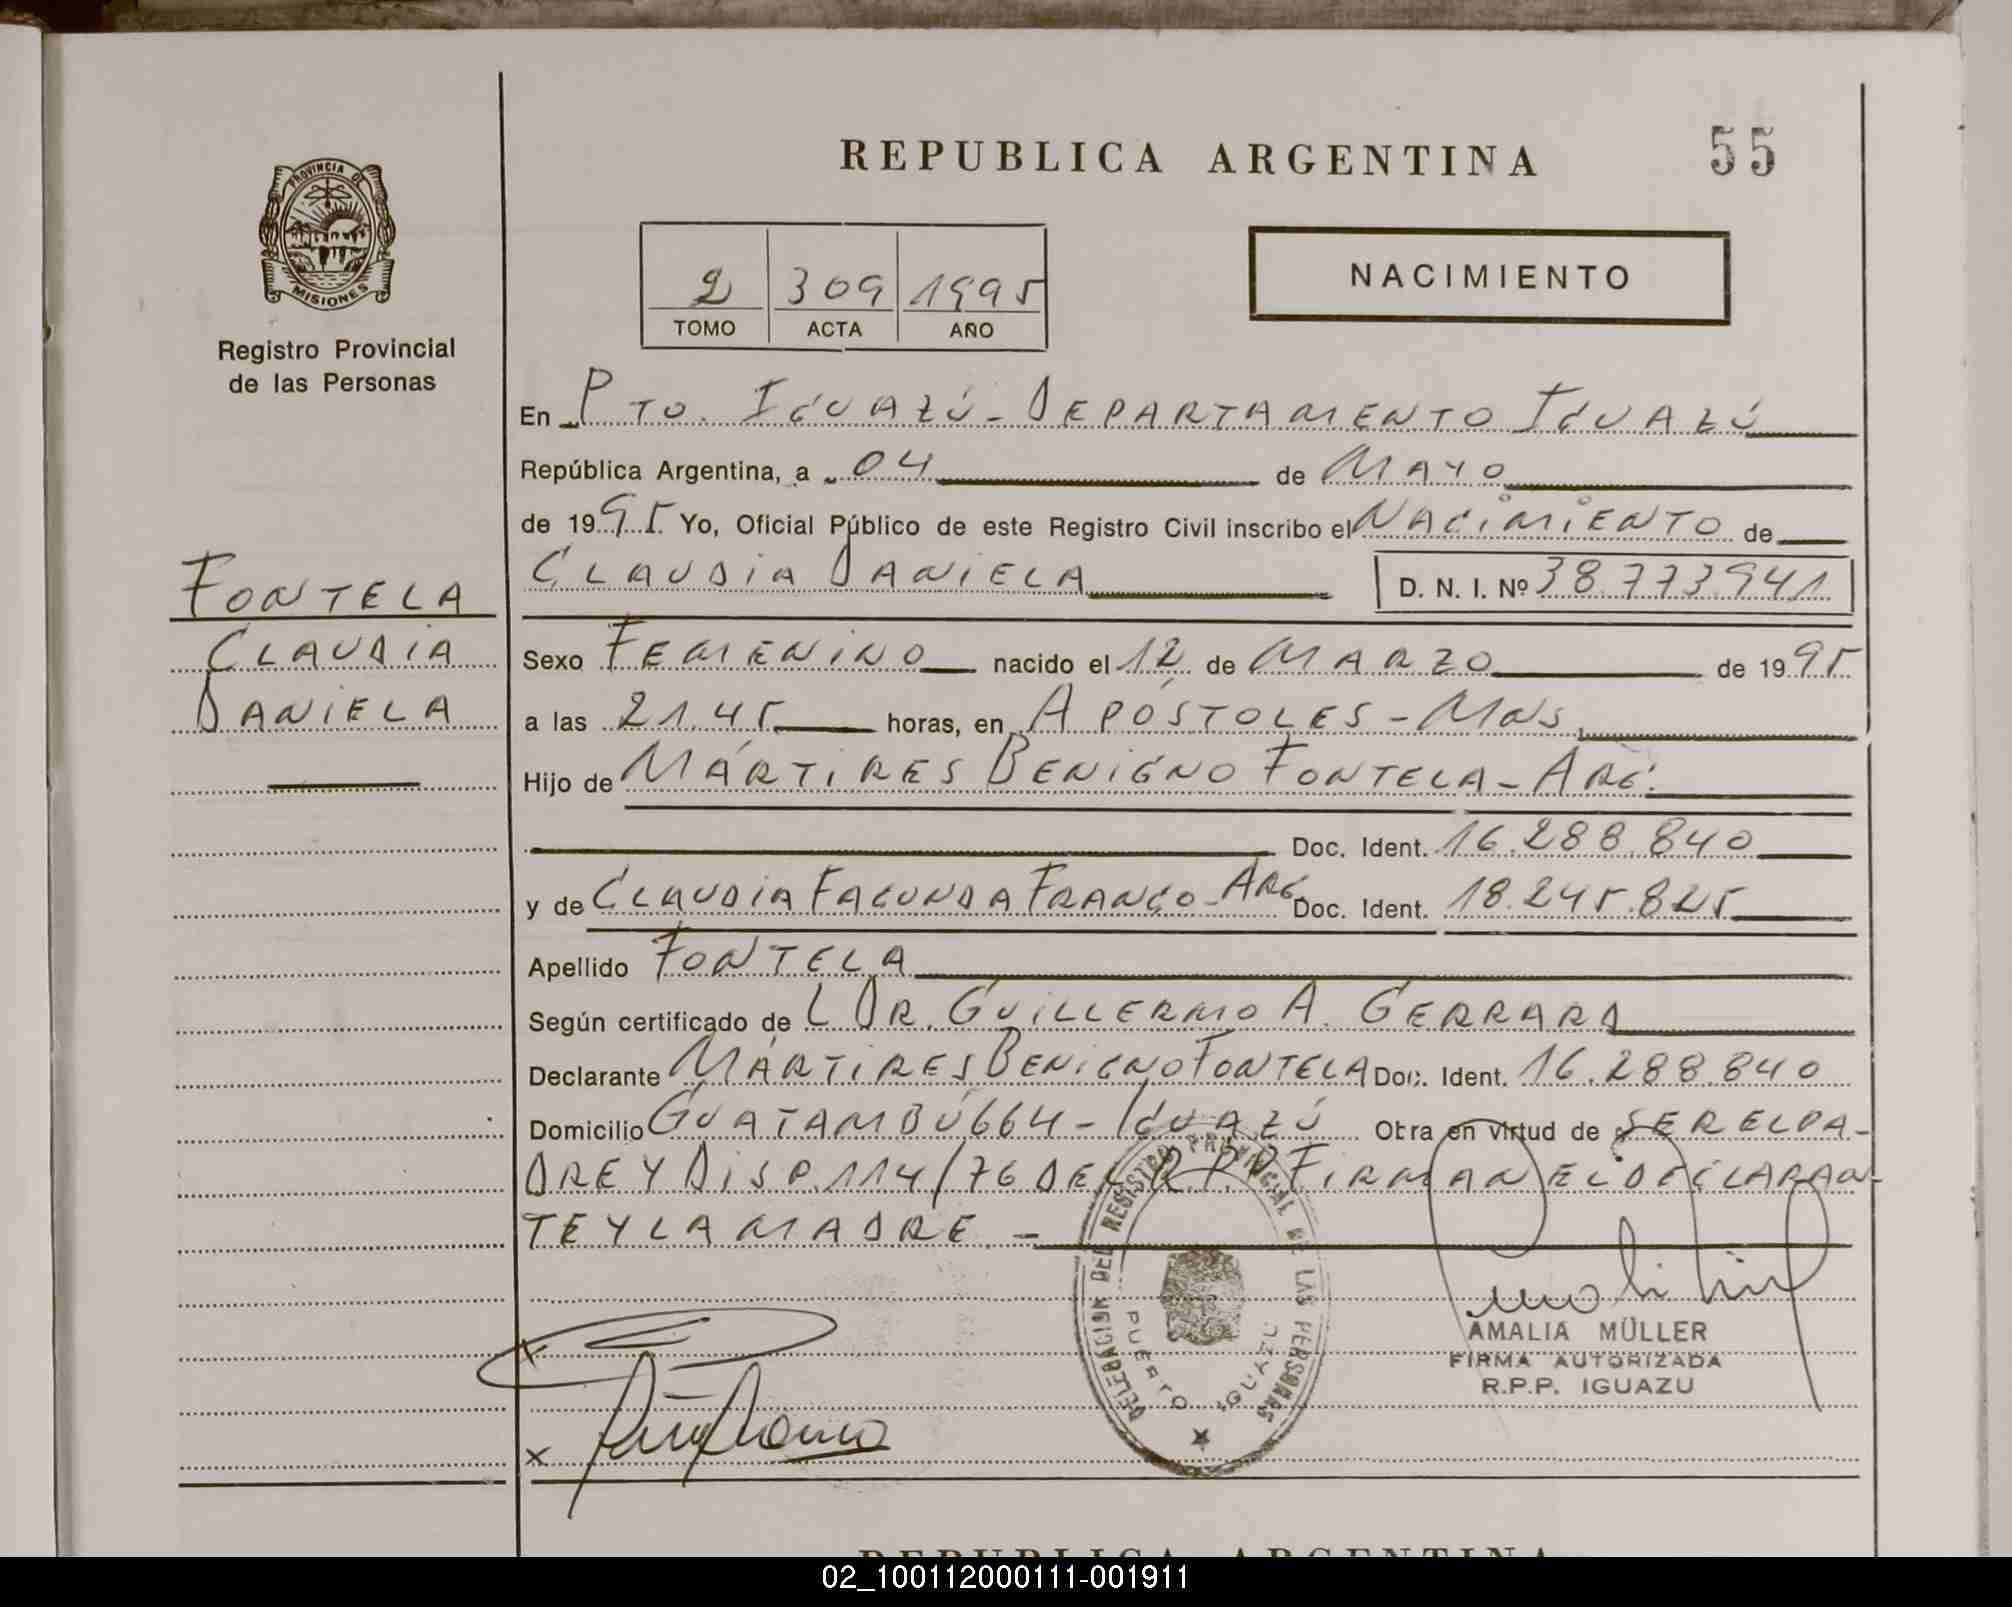 REPUBLICA ARGENTINA
55
PROVINCIA DE
MISIONES
Registro Provincial
de las Personas
2 309 1995
TOMO ACTA AÑO
NACIMIENTO
En PTO. IGUAZÚ - DEPARTAMENTO IGUAZÚ
República Argentina, a 04 de MAYO
de 1995. Yo, Oficial Público de este Registro Civil inscribo el NACIMIENTO de
CLAUDIA DANIELA D. N. I. Nº 38.773.941
FONTELA
CLAUDIA
DANIELA
Sexo FEMENINO nacido el 12 de MARZO de 1995
a las 21.45 horas, en APÓSTOLES - MNS.
Hijo de MÁRTIRES BENIGNO FONTELA - ARG.
Doc. Ident. 16.288.840
y de CLAUDIA FACUNDA FRANCO - ARG Doc. Ident. 18.245.825
Apellido FONTELA
Según certificado de L DR. GUILLERMO A. GERRARD
Declarante MÁRTIRES BENIGNO FONTELA Doc. Ident. 16.288.840
Domicilio GUATAMBÚ 664 - IGUAZÚ Obra en virtud de SER EL PA-
DRE Y DISP. 114/76 DEL R.P.P. FIRMAN EL DECLARAN-
TE Y LA MADRE. -
DELEGACION DEL REGISTRO PROVINCIAL DE LAS PERSONAS
PUERTO IGUAZU
AMALIA MÜLLER
FIRMA AUTORIZADA
R.P.P. IGUAZU
X
X
REPUBLICA ARGENTINA
02_100112000111-001911